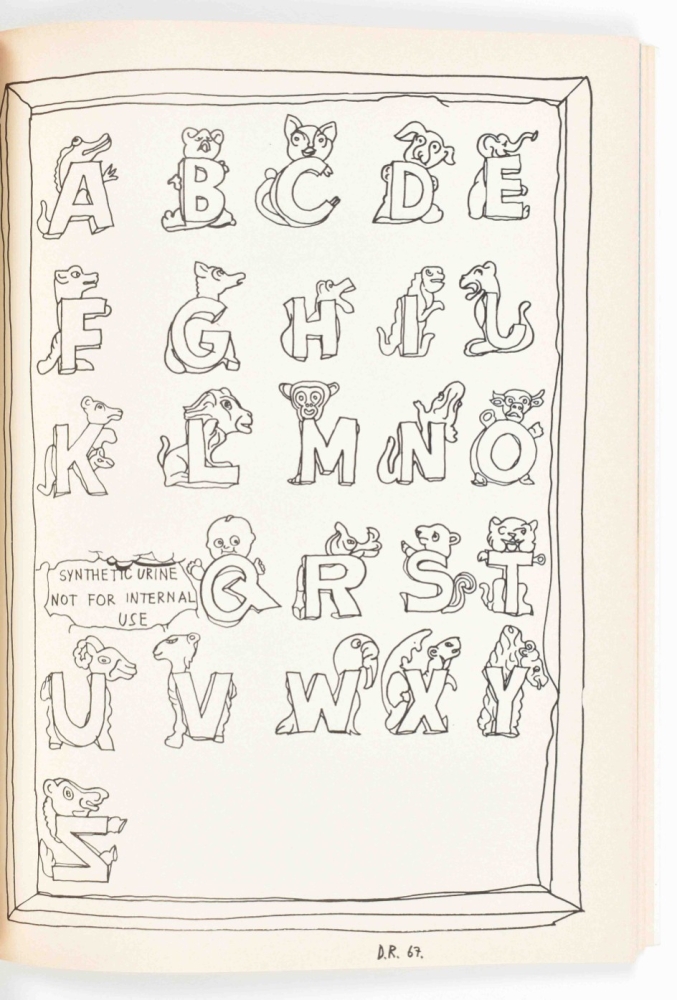 A B C D E
F G H I J
K L M N O
SYNTHETIC URINE
NOT FOR INTERNAL
USE
Q R S T
U V W X Y
Z
D.R. 67.